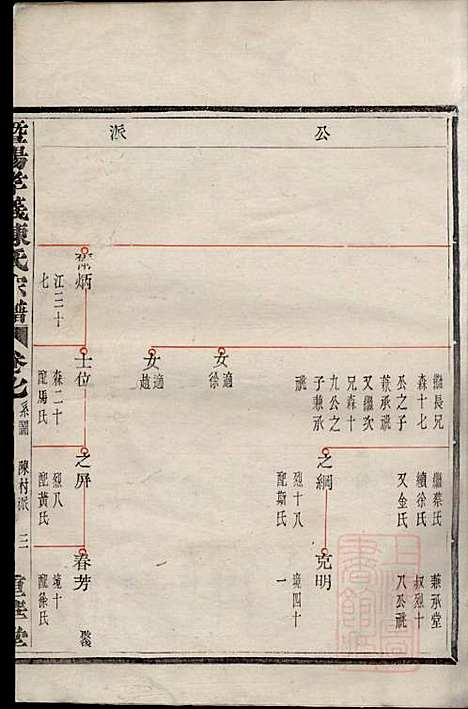 公派
繼長兄
森十七
公之子
兼承祧
又繼次
兄森十
九公之
子兼承
祧
女
適徐
女
適趙
炳
江二百二十
七
士位
森二十
配馬氏
繼蔡氏
續徐氏
又金氏
之綱
烈十八
配斯氏
之屏
烈八
配黃氏
兼承堂
叔烈十
八公祧
克明
境四十
一
春芳
境十
配徐氏
暨陽孝義陳氏宗譜
卷之
系圖
陳村派
三